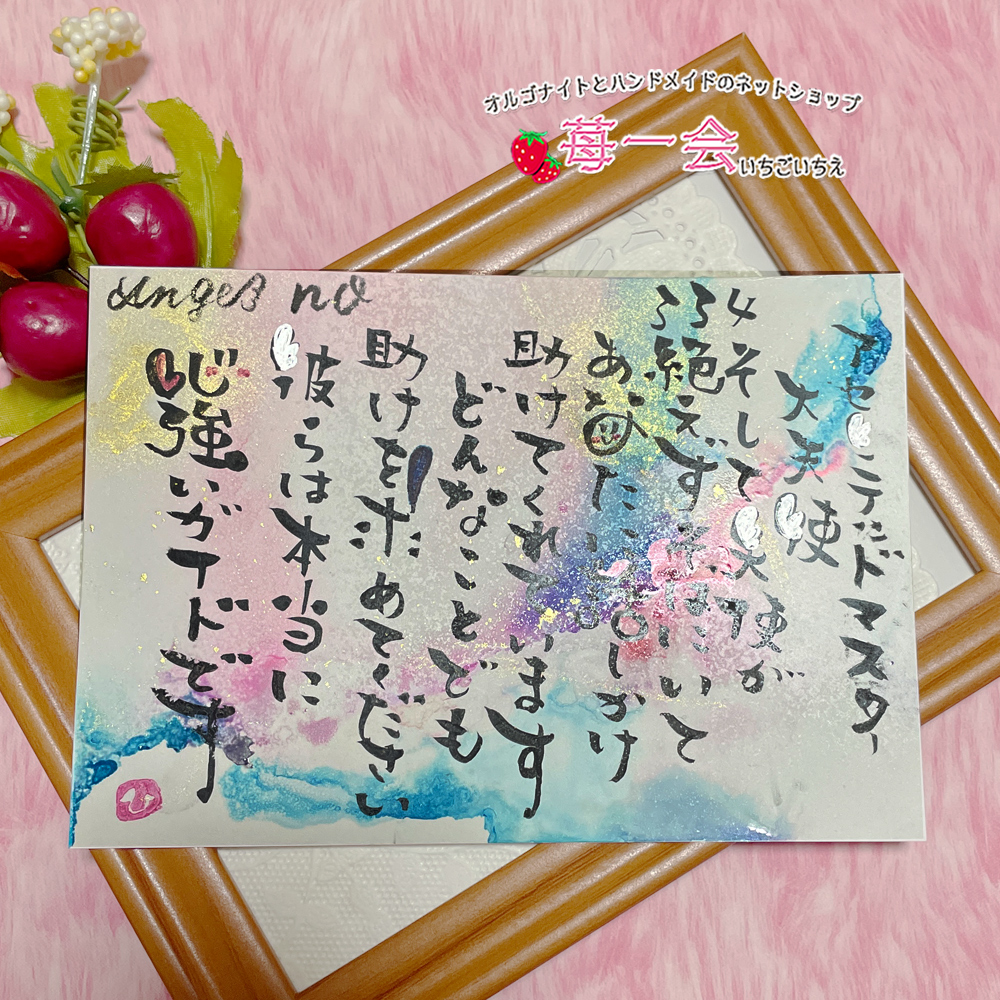 オルゴナイトとハンドメイドのネットショップ
苺一会
いちごいちえ
angel no
334
アセンデッドマスター
大天使
そして天使が
絶えずそばにいて
あなたに話しかけ
助けてくれています
どんなことでも
助けを求めてください
彼らは本当に
心強いガイドです